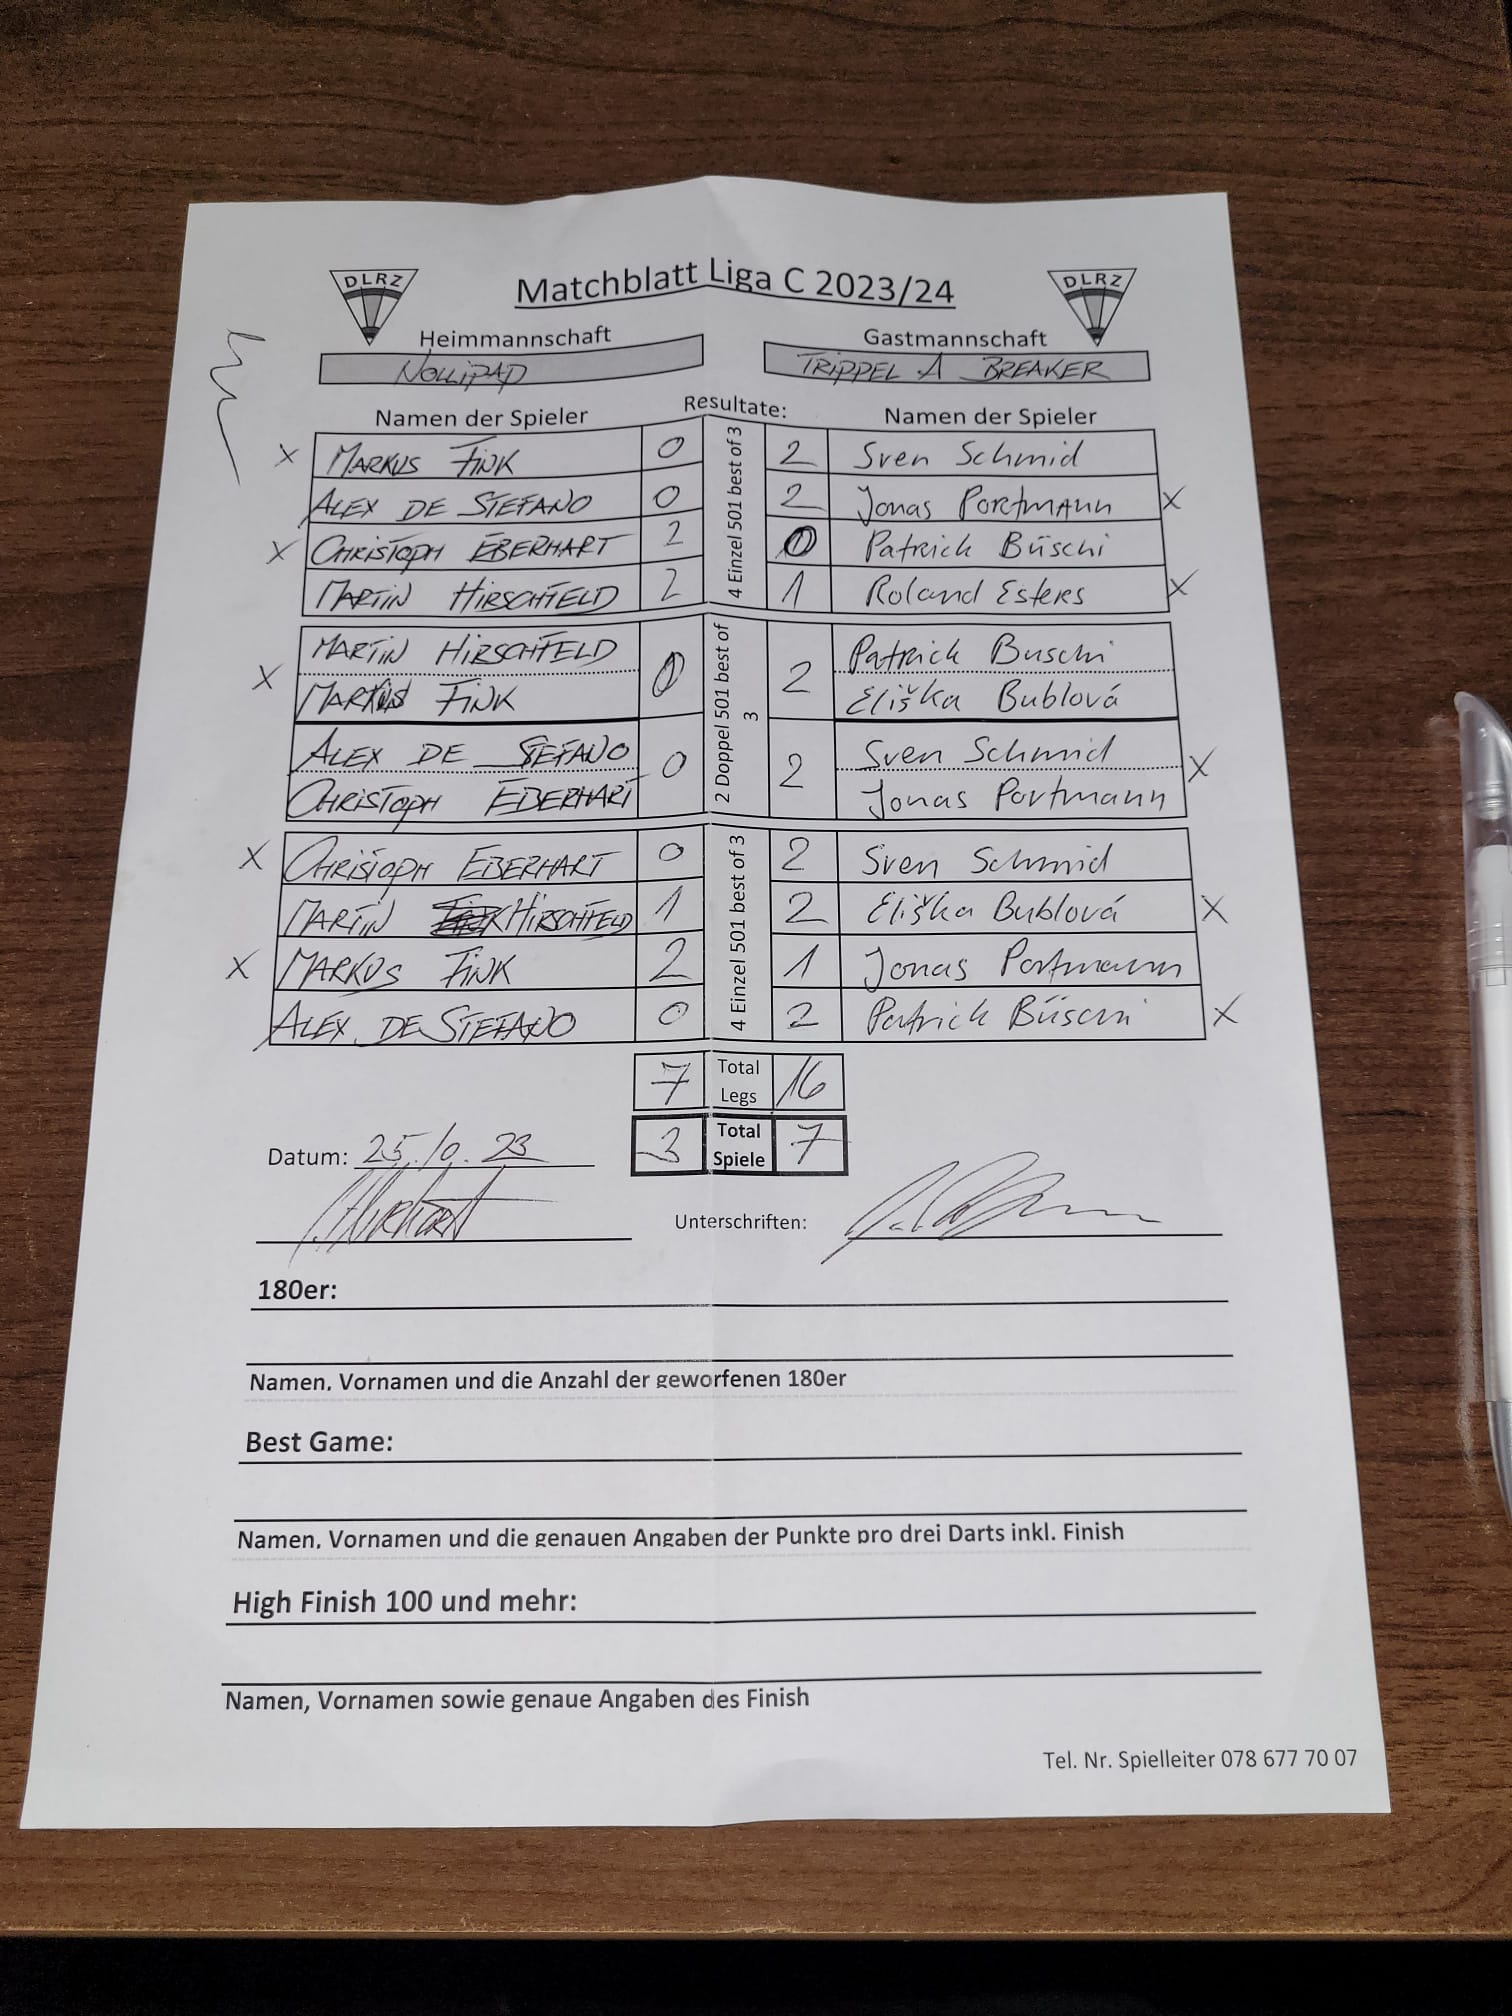 DLRZ Matchblatt Liga C 2023/24 DLRZ
Heimmannschaft Gastmannschaft
NOLLIPAD TRIPPEL A BREAKER
Namen der Spieler Resultate: Namen der Spieler
4 Einzel 501 best of 3
X MARKUS FINK 0 2 Sven Schmid
ALEX DE STEFANO 0 2 Jonas Portmann X
X CHRISTOPH EBERHART 2 0 Patrick Büschi
MARTIN HIRSCHFELD 2 1 Roland Esters X
2 Doppel 501 best of 3
MARTIN HIRSCHFELD Patrick Buschi
X 0 2
MARKUS FINK Eliška Bublová
ALEX DE STEFANO Sven Schmid
0 2 X
CHRISTOPH EBERHART Jonas Portmann
4 Einzel 501 best of 3
X CHRISTOPH EBERHART 0 2 Sven Schmid
MARTIN HIRSCHFELD 1 2 Eliška Bublová X
X MARKUS FINK 2 1 Jonas Portmann
ALEX DE STEFANO 0 2 Patrick Büschi X
7 Total Legs 16
3 Total Spiele 7
Datum: 25.10.23
Unterschriften:
180er:
Namen, Vornamen und die Anzahl der geworfenen 180er
Best Game:
Namen, Vornamen und die genauen Angaben der Punkte pro drei Darts inkl. Finish
High Finish 100 und mehr:
Namen, Vornamen sowie genaue Angaben des Finish
Tel. Nr. Spielleiter 078 677 70 07